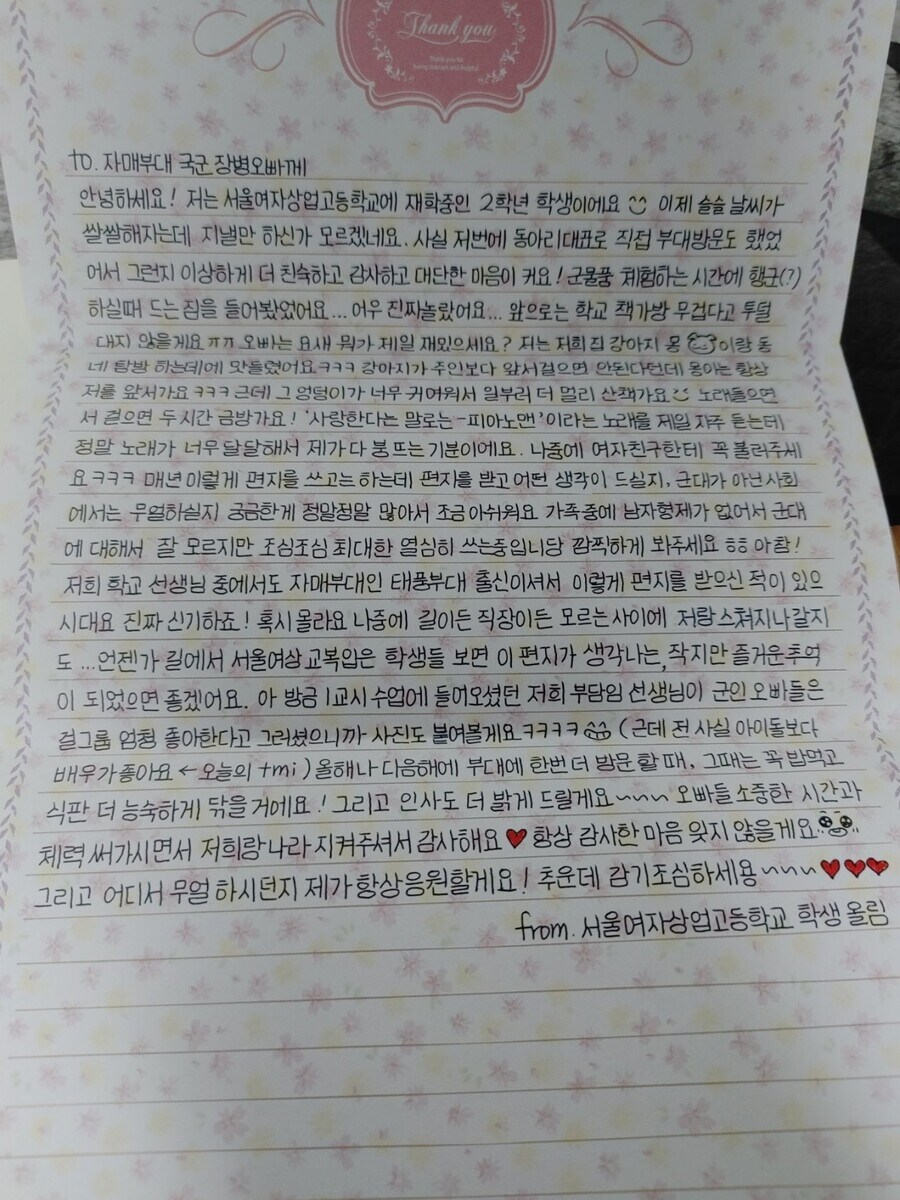 Thank you
to. 자매부대 국군 장병오빠께
안녕하세요! 저는 서울여자상업고등학교에 재학중인 2학년 학생이에요 이제 슬슬 날씨가
쌀쌀해지는데 지낼만 하신가 모르겠네요. 사실 저번에 동아리대표로 직접 부대방문도 했었
어서 그런지 이상하게 더 친숙하고 감사하고 대단한 마음이 커요! 군물품 체험하는 시간에 행군(?)
하실때 드는 짐을 들어봤었어요... 어우 진짜놀랐어요... 앞으로는 학교 책가방 무겁다고 투덜
대지 않을게요ㅠㅠ 오빠는 요새 뭐가 제일 재밌으세요? 저는 저희집 강아지 몽이랑 동
네 탐방 하는데에 맛들렸어요ㅋㅋㅋ 강아지가 주인보다 앞서걸으면 안된다던데 몽이는 항상
저를 앞서가요ㅋㅋㅋ 근데 그 엉덩이가 너무 귀여워서 일부러 더 멀리 산책가요 노래들으면
서 걸으면 두시간 금방가요! '사랑한다는 말로는-피아노맨'이라는 노래를 제일 자주 듣는데
정말 노래가 너무 달달해서 제가 다 붕뜨는 기분이에요. 나중에 여자친구한테 꼭 불러주세
요ㅋㅋㅋ 매년 이렇게 편지를 쓰고는 하는데 편지를 받고 어떤 생각이 드실지, 군대가 아닌 사회
에서는 무얼하실지 궁금한게 정말정말 많아서 조금 아쉬워요 가족중에 남자형제가 없어서 군대
에 대해서 잘 모르지만 조심조심 최대한 열심히 쓰는중입니당 깜찍하게 봐주세요 ㅎㅎ 아참!
저희 학교 선생님 중에서도 자매부대인 태풍부대 출신이셔서 이렇게 편지를 받으신 적이 있으
시대요 진짜 신기하죠! 혹시 몰라요 나중에 길이든 직장이든 모르는 사이에 저랑 스쳐지나갈지
도 ...언젠가 길에서 서울여상 교복입은 학생들 보면 이 편지가 생각나는, 작지만 즐거운 추억
이 되었으면 좋겠어요. 아 방금 1교시 수업에 들어오셨던 저희 부담임 선생님이 군인 오빠들은
걸그룹 엄청 좋아한다고 그러셨으니까 사진도 붙여볼게요ㅋㅋㅋㅋ (근데 전 사실 아이돌보다
배우가 좋아요 ← 오늘의 tmi) 올해나 다음해에 부대에 한번 더 방문 할 때, 그때는 꼭 밥먹고
식판 더 능숙하게 닦을 거에요! 그리고 인사도 더 밝게 드릴게요~~~ 오빠들 소중한 시간과
체력 써가시면서 저희랑 나라 지켜주셔서 감사해요♥ 항상 감사한 마음 잊지 않을게요
그리고 어디서 무얼 하시던지 제가 항상 응원할게요! 추운데 감기조심하세용~~~♥♥♥
from. 서울여자상업고등학교 학생 올림